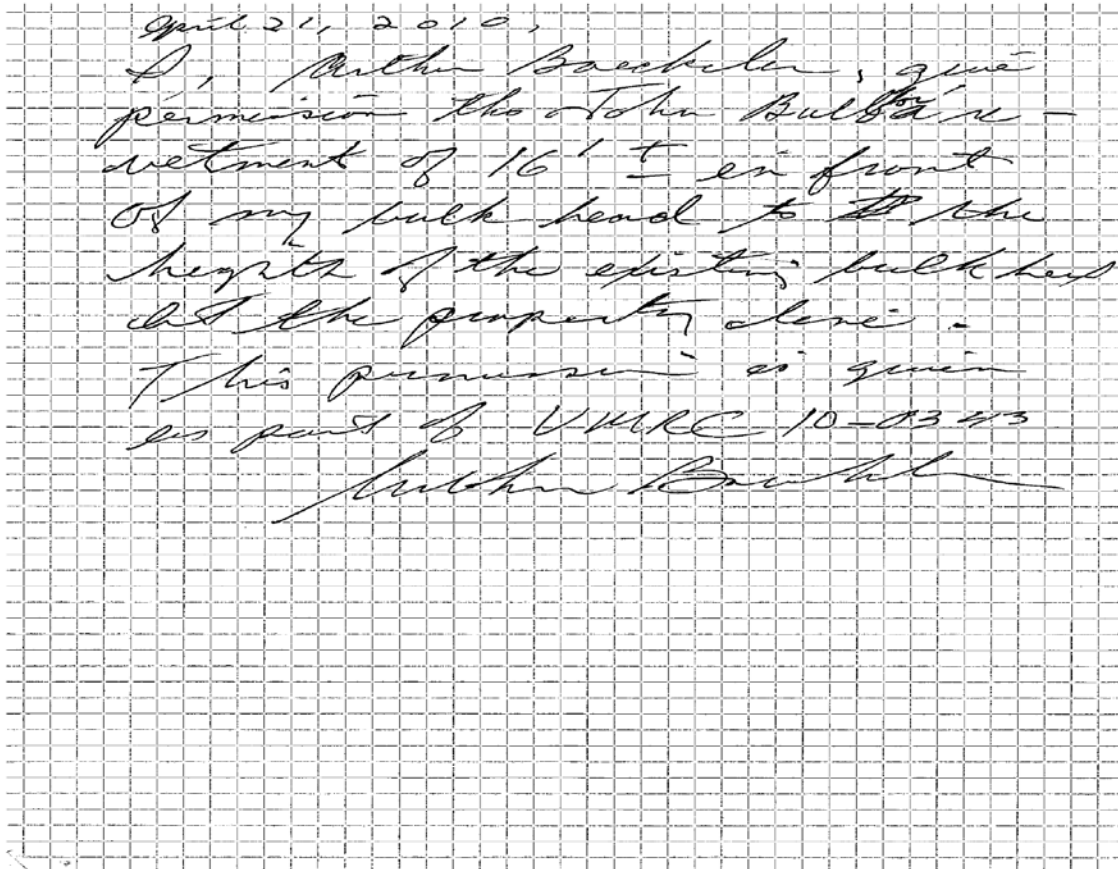 April 21, 2010,
I, Arthur Boeckler, give
permission tho John Bull for a re-
vetment of 16' ± in front
of my bulk head to the
heighth of the existing bulk head
at the property line.
This permission is given
as part of VMRC 10-0343
Arthur